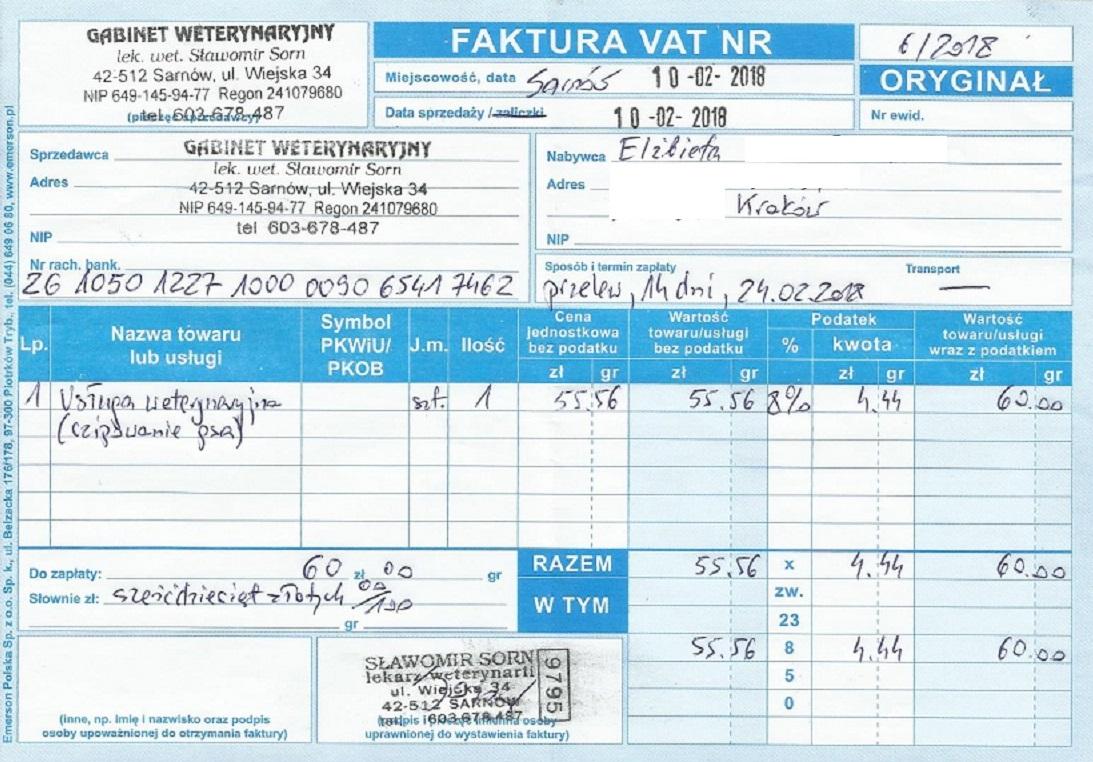 GABINET WETERYNARYJNY
lek. wet. Sławomir Sorn
42-512 Sarnów, ul. Wiejska 34
NIP 649-145-94-77 Regon 241079680
tel 603-678-487
(pieczęć sprzedawcy)
FAKTURA VAT NR
6/2018
Miejscowość, data Sarnów 10-02-2018
ORYGINAŁ
Data sprzedaży / zaliczki 10-02-2018
Nr ewid.
Sprzedawca
GABINET WETERYNARYJNY
lek. wet. Sławomir Sorn
Adres
42-512 Sarnów, ul. Wiejska 34
NIP 649-145-94-77 Regon 241079680
tel 603-678-487
NIP
Nabywca Elżbieta
Adres
Kraków
NIP
Nr rach. bank.
26 1050 1227 1000 0090 6541 7462
Sposób i termin zapłaty
Transport
przelew, 14 dni, 24.02.2018 —
Lp. Nazwa towaru lub usługi Symbol PKWiU/ PKOB J.m. Ilość Cena jednostkowa bez podatku zł gr Wartość towaru/usługi bez podatku zł gr Podatek % kwota zł gr Wartość towaru/usługi wraz z podatkiem zł gr
1 Usługa weterynaryjna szt. 1 55.56 55.56 8% 4.44 60.00
(czipowanie psa)
Do zapłaty: 60 zł 00 gr
Słownie zł: sześćdziesiąt złotych 00/100
gr
RAZEM 55.56 x 4.44 60.00
W TYM
zw.
23
55.56 8 4.44 60.00
5
0
(inne, np. Imię i nazwisko oraz podpis
osoby upoważnionej do otrzymania faktury)
SŁAWOMIR SORN
lekarz weterynarii
ul. Wiejska 34
42-512 SARNÓW
tel. 603 678 487
9795
(podpis i pieczęć imienna osoby
uprawnionej do wystawienia faktury)
Emerson Polska Sp. z o.o. Sp. k., ul. Belzacka 176/178, 97-300 Piotrków Tryb., tel. (044) 649 06 80, www.emerson.pl